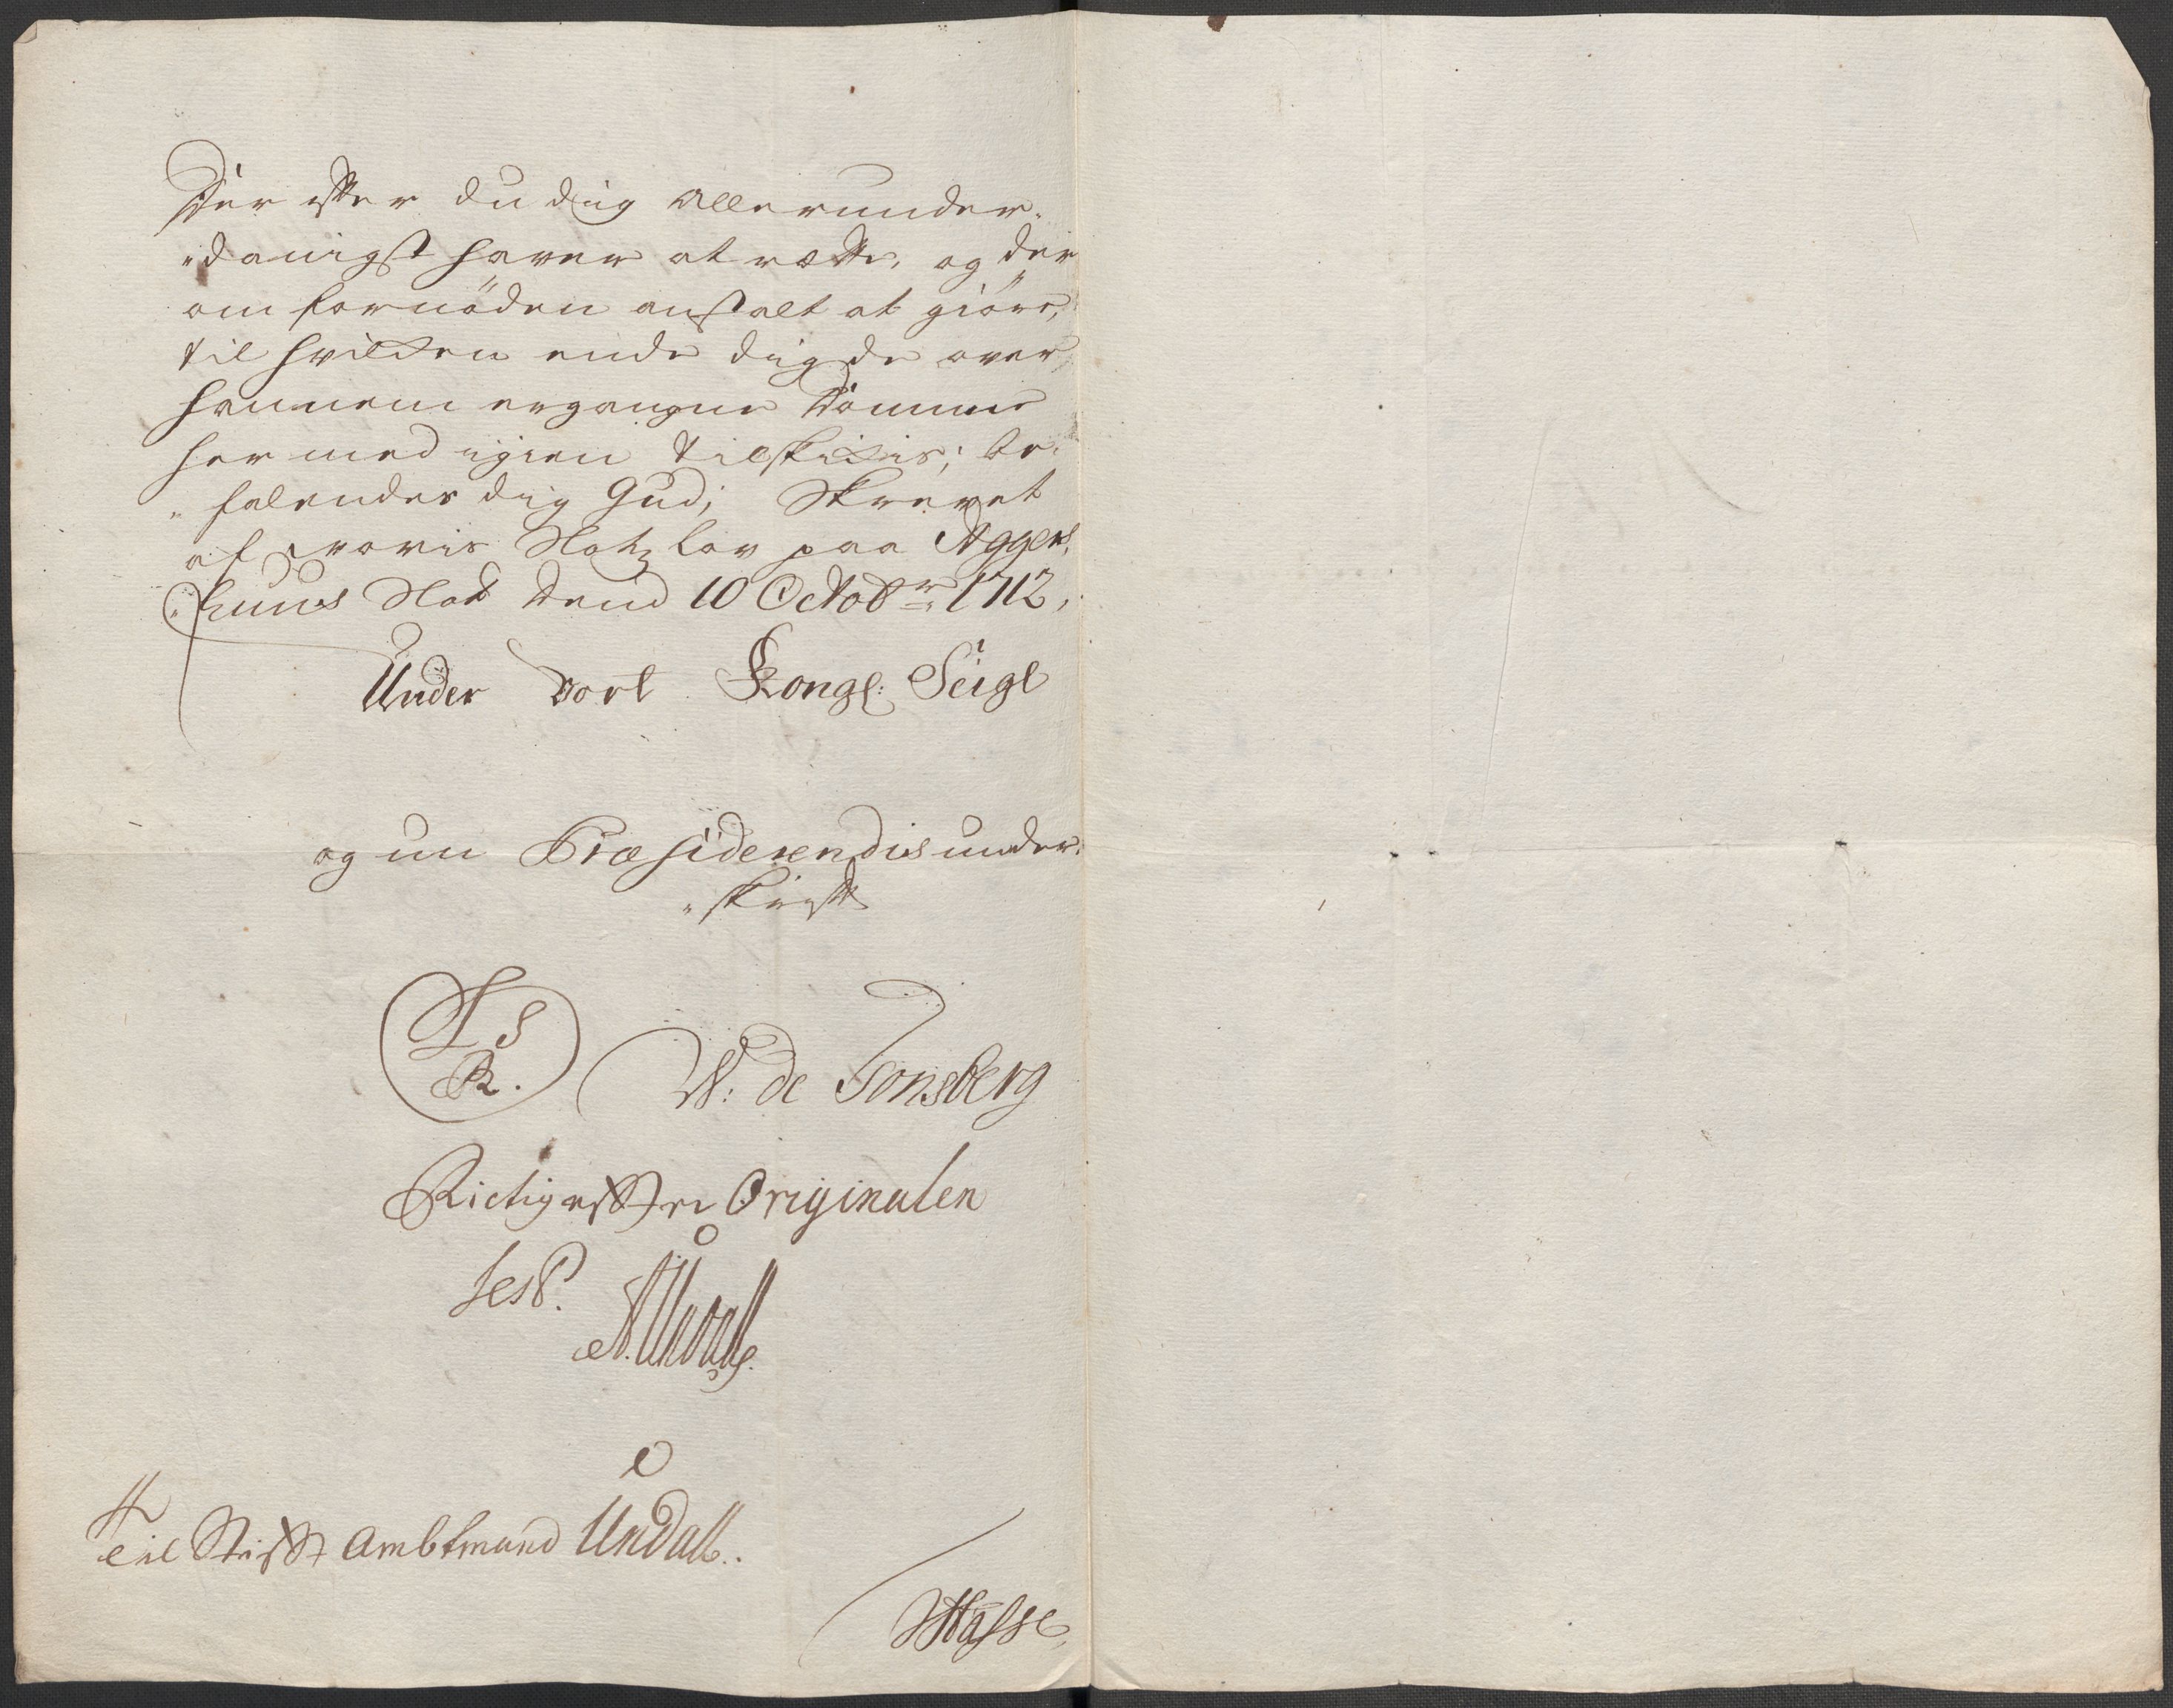 Der efter du dig allerunder-
"danigst haver at rette, og der
om fornöden anstalt at giöre,
til hvilken ende dig de over
hannem ergangne Dömme
her med igien tilskikkis; be-
"falendes dig Gud; Skrevet
af vores Slotzlov paa Agger-
"huus Slot dend 10 Octobr: 1712,
Under vort Kongl: Seigl
og een Præsiderendis under-
"skrift
L S
R.
W: de Tonsberg
Rictig efter Originalen
test.
A. Undall.
Til Stift Ambtmand Undall.